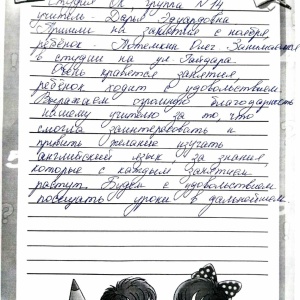 Студия ОК, группа N 14
учитель - Дарья Эдуардовна
Пришли на занятия с ноября
ребёнок - Олег. Занимаемся
в студии на ул. Гайдара.
Очень нравятся занятия,
ребёнок ходит с удовольствием.
Выражаем огромную благодарность
нашему учителю за то, что
смогла заинтересовать и
привить желание изучать
английский язык, за знания,
которые с каждым занятием
растут. Будем с удовольствием
посещать уроки в дальнейшем.